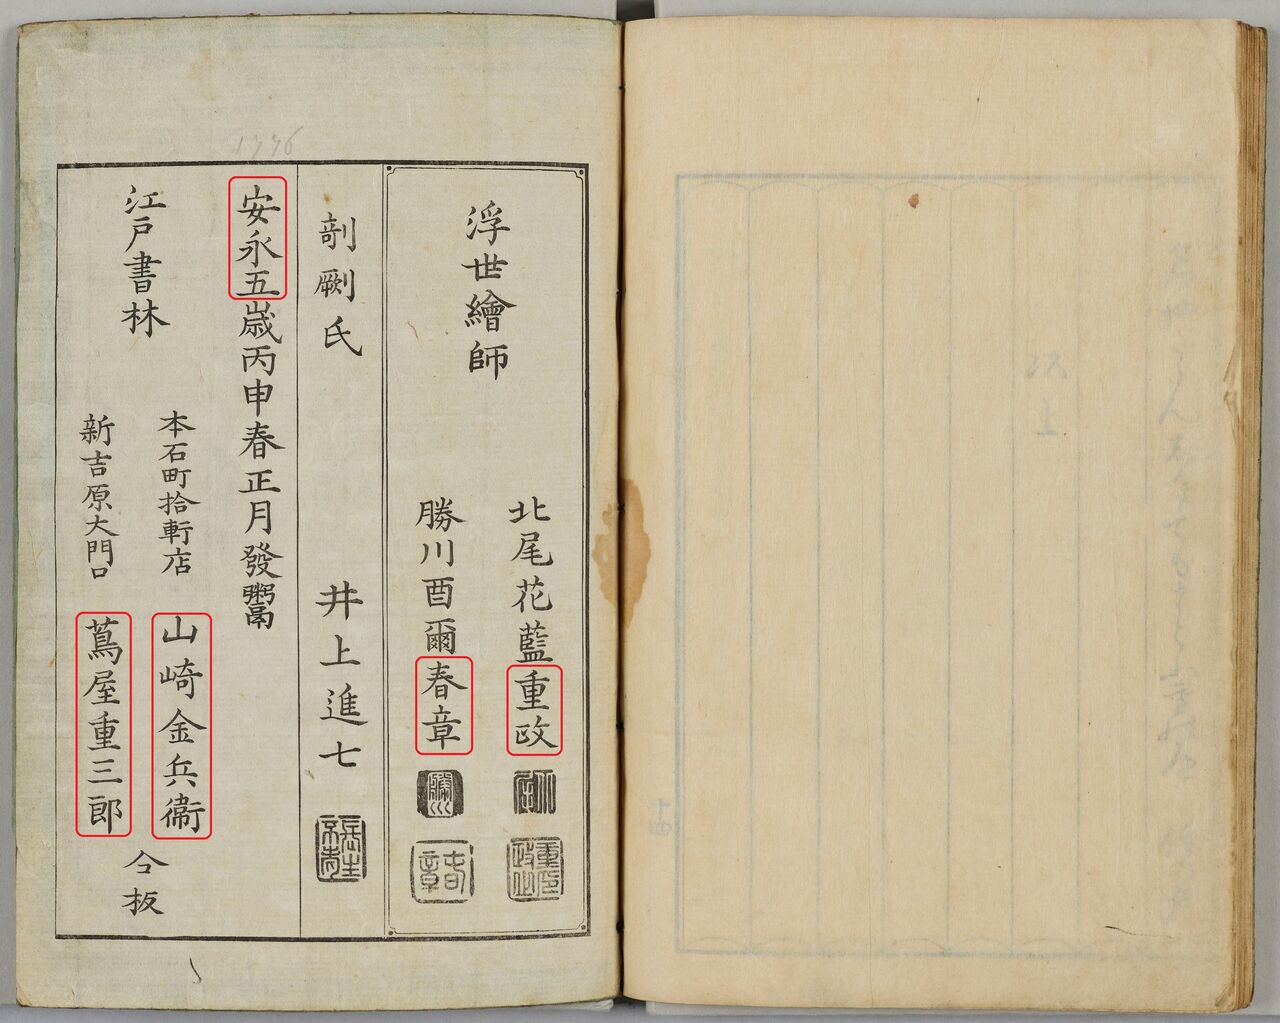 浮世繪師
北尾花藍重政
勝川酉爾春章
剞劂氏
井上進七
安永五歳丙申春正月發鬻
江戸書林
本石町拾軒店
山崎金兵衞
新吉原大門口
蔦屋重三郎
仝板
1776